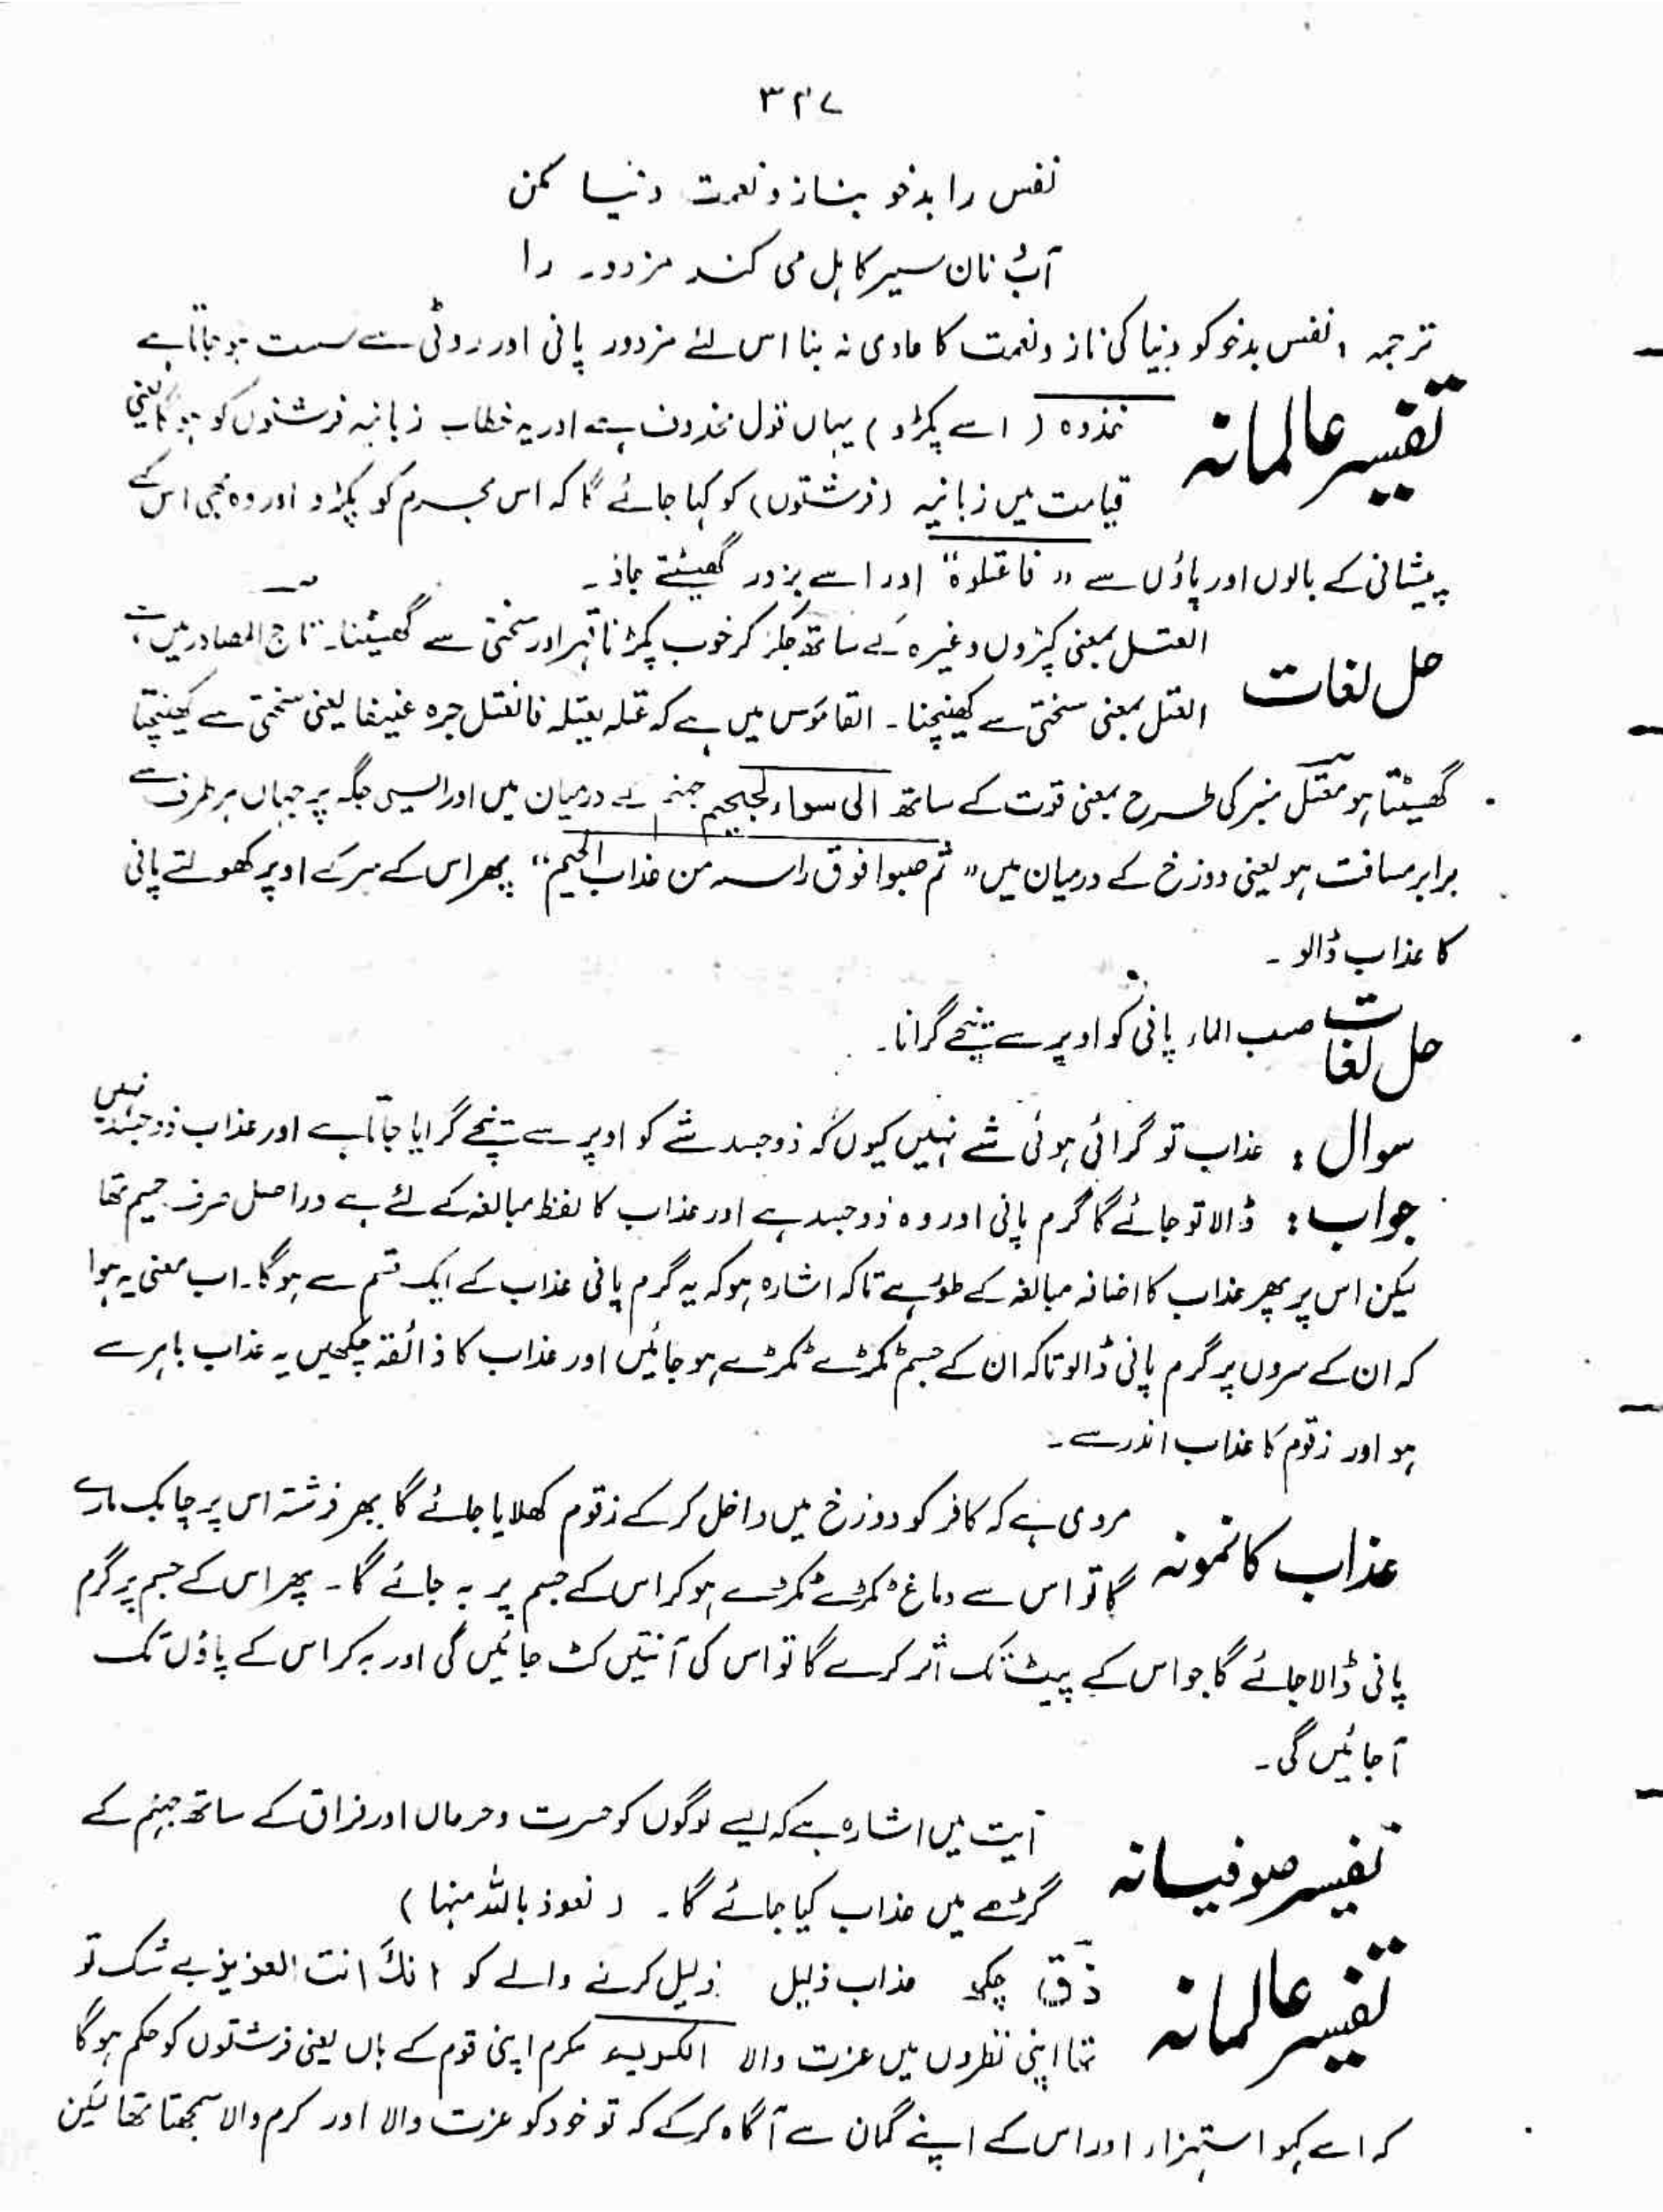 ۳۴۷
نفس را بدخو بناز و نعمت دنیا مکن
آب نان سیر کاہل می کند مزدور را
ترجمہ : نفس بدخو کو دنیا کی ناز ونعمت کا عادی نہ بنا اس لئے مزدور پانی اور روٹی سے سست ہو جاتا ہے
تفسیر عالمانہ
خذوہ ( اسے پکڑو ) یہاں قول محذوف ہے اور یہ خطاب زبانیہ فرشتوں کو ہوگا یعنی
قیامت میں زبانیہ (فرشتوں) کو کہا جائے گا کہ اس مجرم کو پکڑو اور وہ بھی اس کے
پیشانی کے بالوں اور پاؤں سے " فاعتلوہ" اور اسے بزور گھسیٹتے جاؤ۔
حل لغات
العتل بمعنی کپڑوں وغیرہ کے ساتھ جکڑ کر خوب پکڑنا قہر اور سختی سے گھسیٹنا۔ تاج المصادر میں ہے
العتل بمعنی سختی سے کھینچنا ۔ القاموس میں ہے کہ عتلہ یعتلہ فانعتل جرہ عنیفا یعنی سختی سے کھینچتا
گھسیٹتا ہو معتل منبر کی طرح بمعنی قوت کے ساتھ الی سواء الجحیم جہنم کے درمیان میں اور ایسی جگہ پر جہاں ہر طرف سے
برابر مسافت ہو یعنی دوزخ کے درمیان میں " ثم صبوا فوق راسہ من عذاب الحمیم" پھر اس کے سر کے اوپر کھولتے پانی
کا عذاب ڈالو ۔
حل لغات صب الماء پانی کو اوپر سے نیچے گرانا۔
سوال : عذاب تو گرائی ہوئی شے نہیں کیوں کہ ذوجسد شے کو اوپر سے نیچے گرایا جاتا ہے اور عذاب ذوجسد نہیں
جواب : ڈالا تو جائے گا گرم پانی اور وہ ذوجسد ہے اور عذاب کا لفظ مبالغہ کے لئے ہے دراصل صرف حمیم تھا
لیکن اس پر پھر عذاب کا اضافہ مبالغہ کے طور ہے تاکہ اشارہ ہو کہ یہ گرم پانی عذاب کے ایک قسم سے ہوگا۔ اب معنی یہ ہوا
کہ ان کے سروں پر گرم پانی ڈالو تاکہ ان کے جسم ٹکڑے ٹکڑے ہو جائیں اور عذاب کا ذائقہ چکھیں یہ عذاب باہر سے
ہو اور زقوم کا عذاب اندر سے ۔
عذاب کا نمونہ
مروی ہے کہ کافر کو دوزخ میں داخل کر کے زقوم کھلایا جائے گا پھر فرشتہ اس پر چابک مارے
گا تو اس سے دماغ ٹکڑے ٹکڑے ہو کر اس کے جسم پر بہ جائے گا ۔ پھر اس کے جسم پر گرم
پانی ڈالا جائے گا جو اس کے پیٹ تک اثر کرے گا تو اس کی آنتیں کٹ جائیں گی اور بہ کر اس کے پاؤں تک
آجائیں گی ۔
تفسیر صوفیانہ
آیت میں اشارہ ہے کہ ایسے لوگوں کو حسرت وحرماں اور فراق کے ساتھ جہنم کے
گڑھے میں عذاب کیا جائے گا ۔ ( نعوذ باللہ منہا )
تفسیر عالمانہ
ذق چکھ عذاب ذلیل ذلیل کرنے والے کو انک انت العزیز بے شک تو
تھا اپنی نظروں میں عزت والا الکریم مکرم اپنی قوم کے ہاں یعنی فرشتوں کو حکم ہوگا
کہ اسے کہو استہزاء اور اس کے اپنے گمان سے آگاہ کر کے کہ تو خود کو عزت والا اور کرم والا سمجھتا تھا لیکن